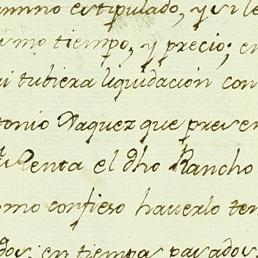 amno estipulado, y si le
ismo tiempo, y precio; en
i tubiera liquidacion con
tonio Vaquez que preven
Renta el dho Rancho
omo confieso haverlo ten
dos; en tiempos pasados